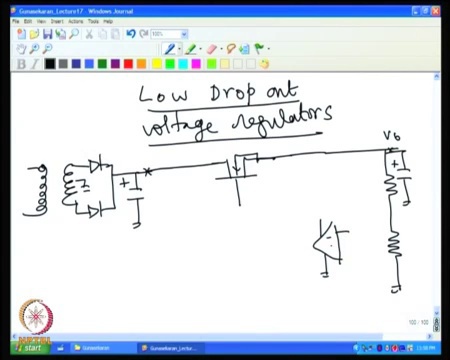 Gunasekaran_Lecture17 - Windows Journal
File Edit View Insert Actions Tools Help
100%
B I
Low Drop out
voltage regulators
Vo
+
+
100 / 100
NPTEL
start
Gunasekaran
Gunasekaran_Lectu...